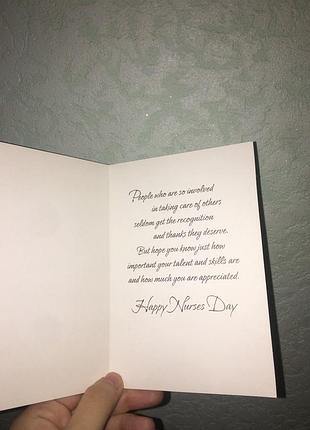 People who are so involved
in taking care of others
seldom get the recognition
and thanks they deserve.
But hope you know just how
important your talent and skills are
and how much you are appreciated.
Happy Nurses Day